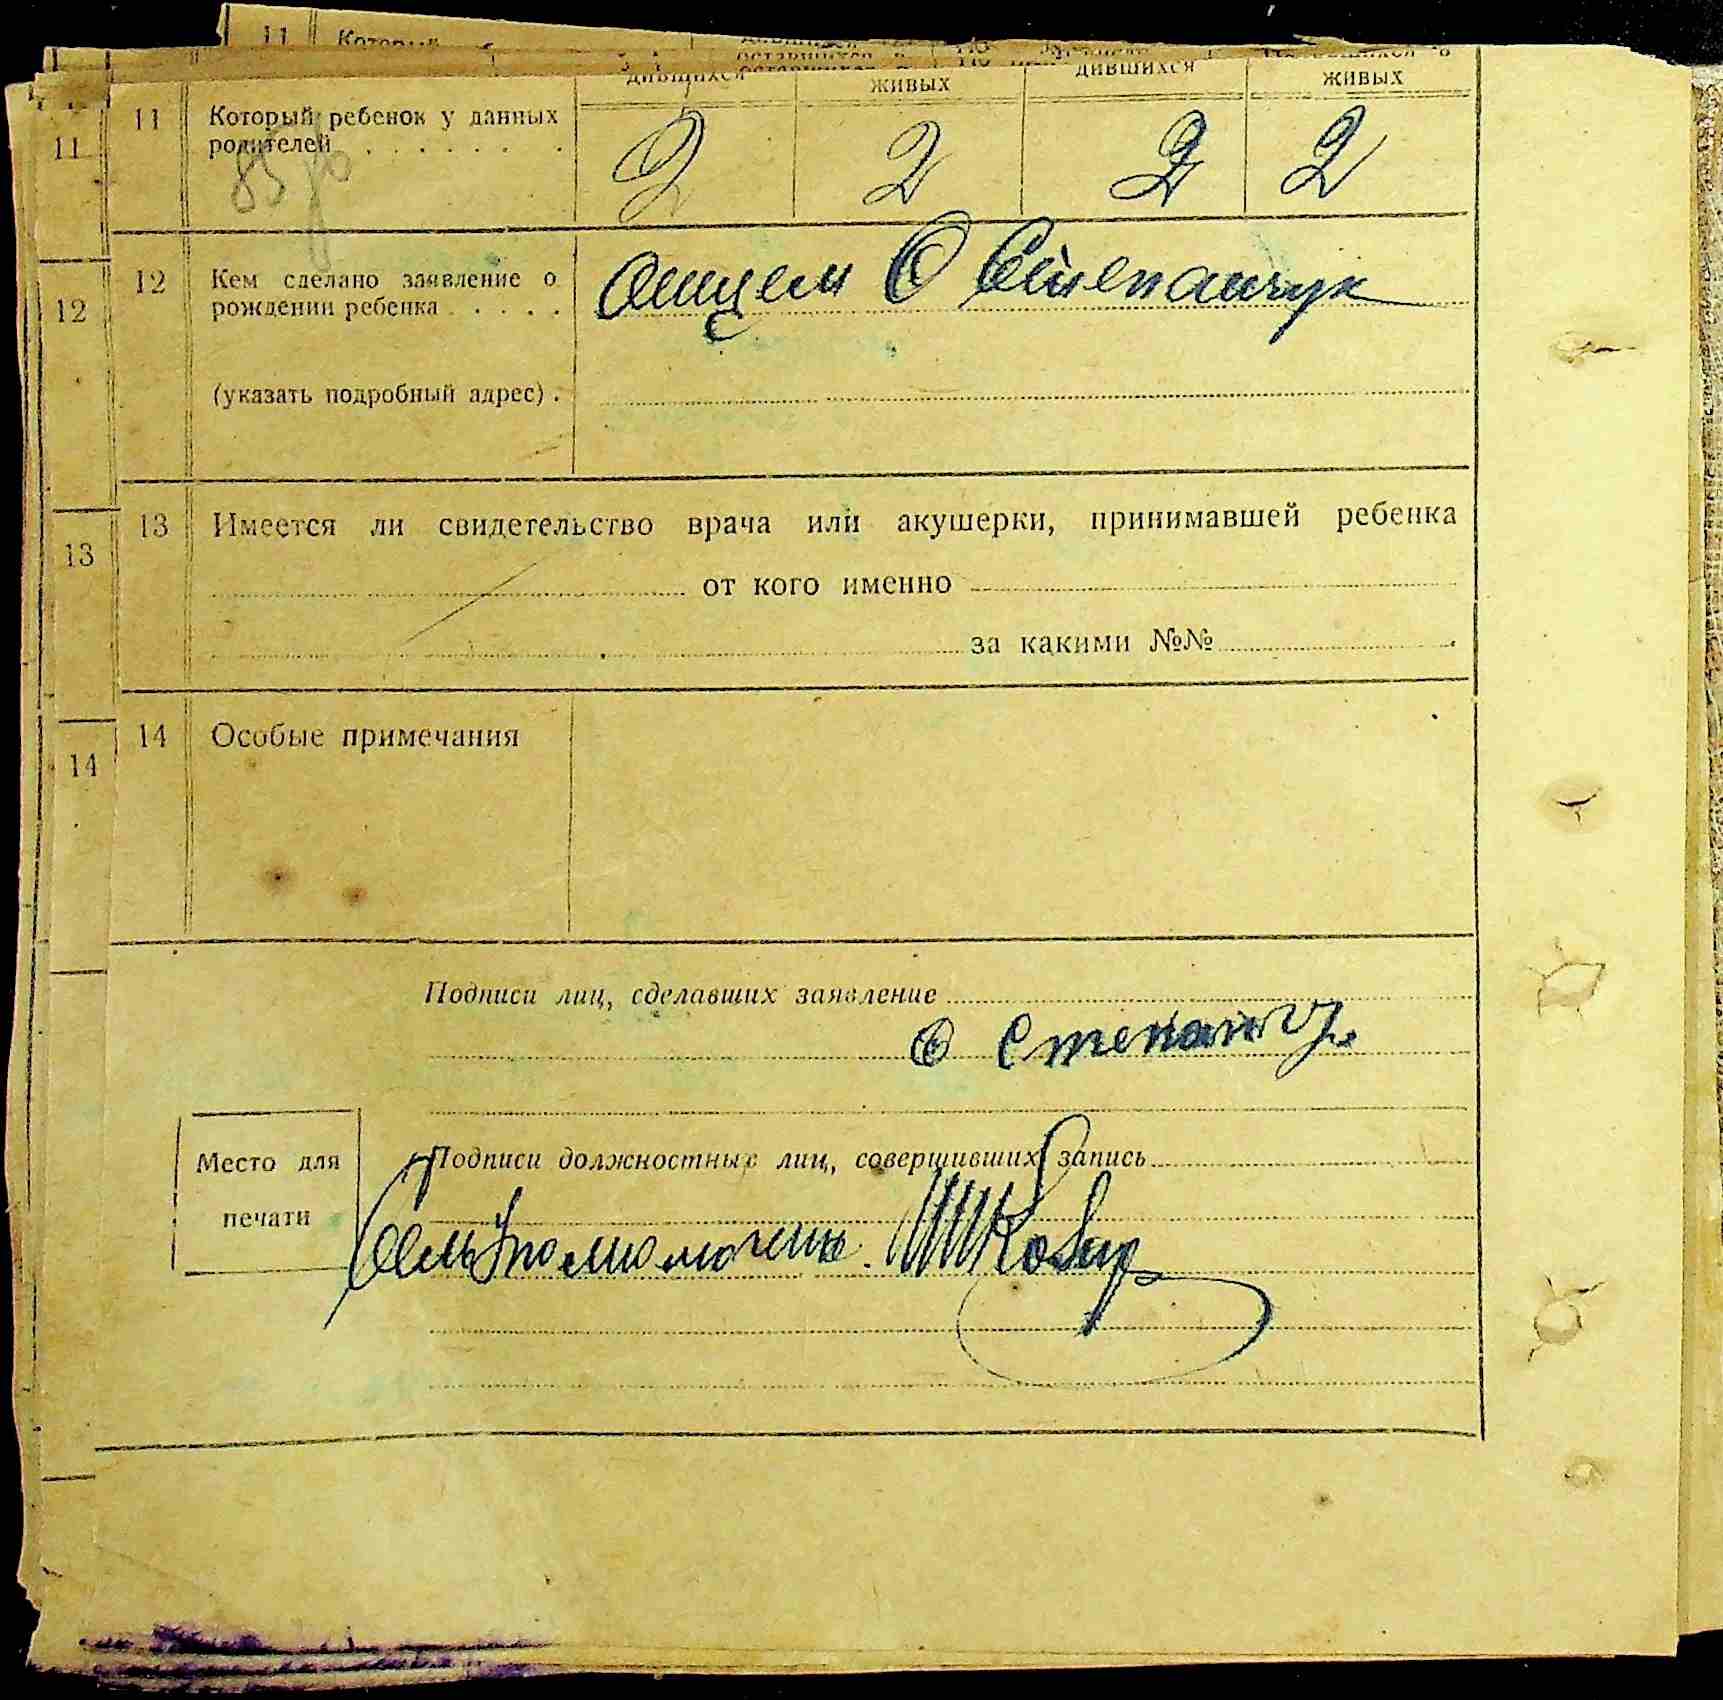 11 Который
дившихся живых дившихся живых
11 11 Который ребенок у данных
родителей 2 2 2 2
12 12 Кем сделано заявление о
рождении ребенка Отцем О Степанчук
(указать подробный адрес)
13 13 Имеется ли свидетельство врача или акушерки, принимавшей ребенка
от кого именно
за какими №№
14 14 Особые примечания
Подписи лиц, сделавших заявление
О Степанчу
Место для
печати
Подписи должностных лиц, совершивших запись